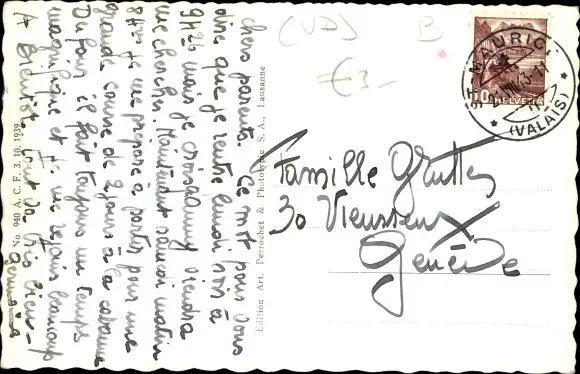 chers parents. Ce mot pour vous
dire que je rentre lundi soir à
9h26 mais je viendra
me chercher. Maintenant samedi matin
8h je me prépare à partir pour une
grande course de 2 jours à la cabane
Dufour il fait toujours un temps
magnifique et je me réjouis beaucoup
A Bientôt tout va très bien
No. 940 A. C. F. 3. 10. 1939
Edition Art. Perrochet & Phototypie S. A., Lausanne
(VD)
B
€3-
ST MAURICE
(VALAIS)
10 HELVETIA
Famille
30 Vieusseux
Genève